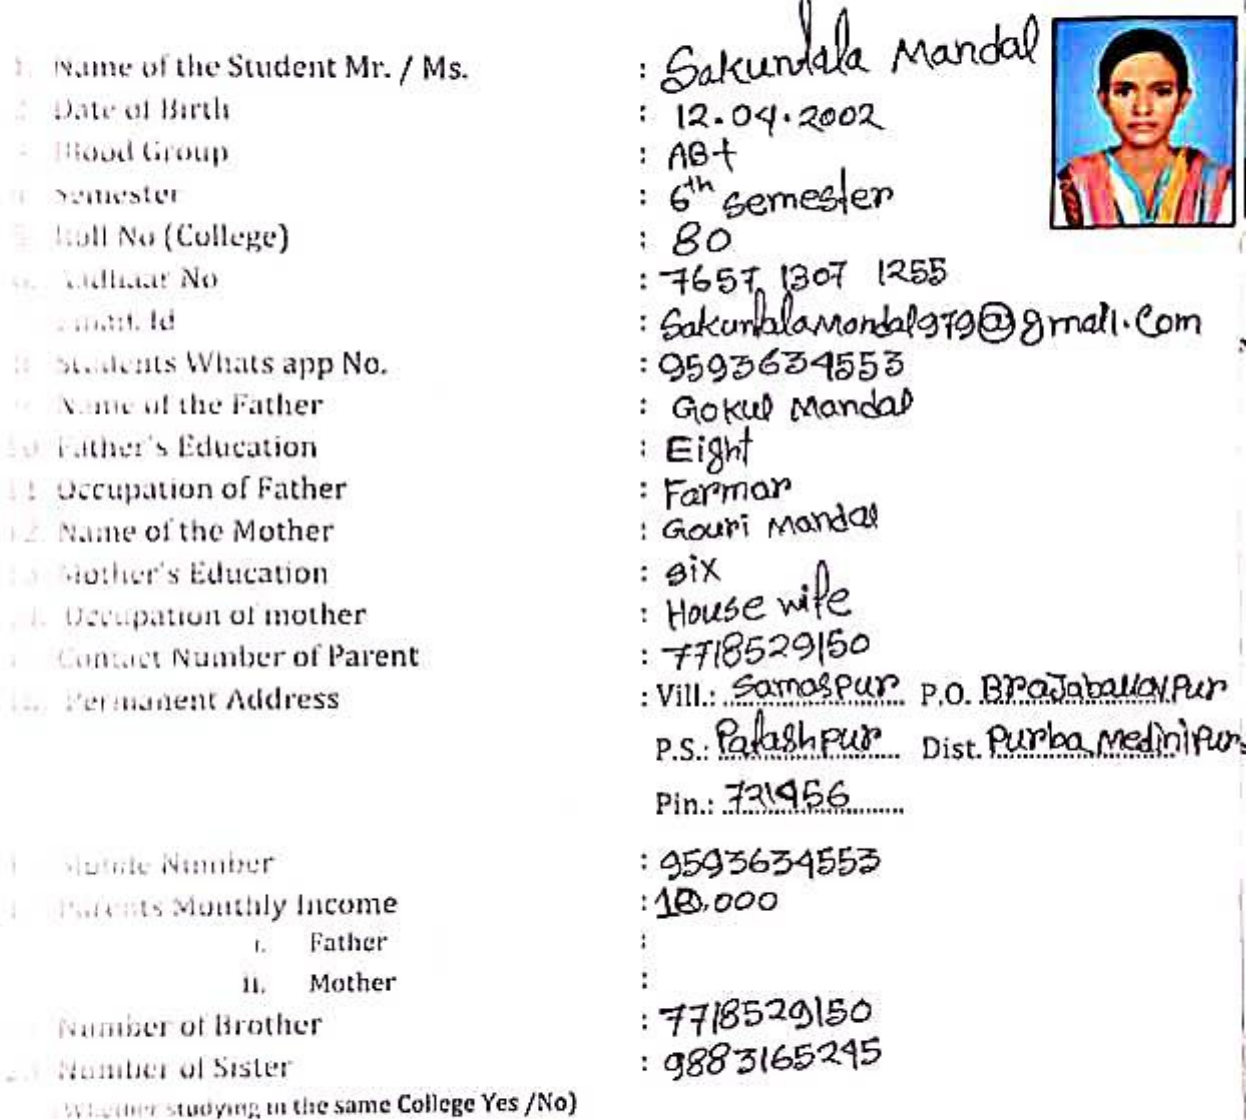 1. Name of the Student Mr. / Ms. : Sakuntala Mandal
2. Date of Birth : 12.04.2002
Blood Group : AB+
Semester : 6th semester
Roll No (College) : 80
Aadhaar No : 7657 1307 1255
Email. Id : SakuntalaMondal979@gmail.Com
8. Students Whats app No. : 9593634553
Name of the Father : Gokul Mandal
10. Father's Education : Eight
11. Occupation of Father : Farmar
12. Name of the Mother : Gouri Mandal
13. Mother's Education : six
14. Occupation of mother : House wife
Contact Number of Parent : 7718529150
16. Permanent Address : Vill.: Samaspur P.O. Brajaballavpur
P.S.: Patashpur Dist. Purba Medinipur
Pin.: 721456
Mobile Number : 9593634553
Parents Monthly Income : 10,000
i. Father :
ii. Mother :
Number of Brother : 7718529150
Number of Sister : 9883165245
(Whether studying in the same College Yes /No)